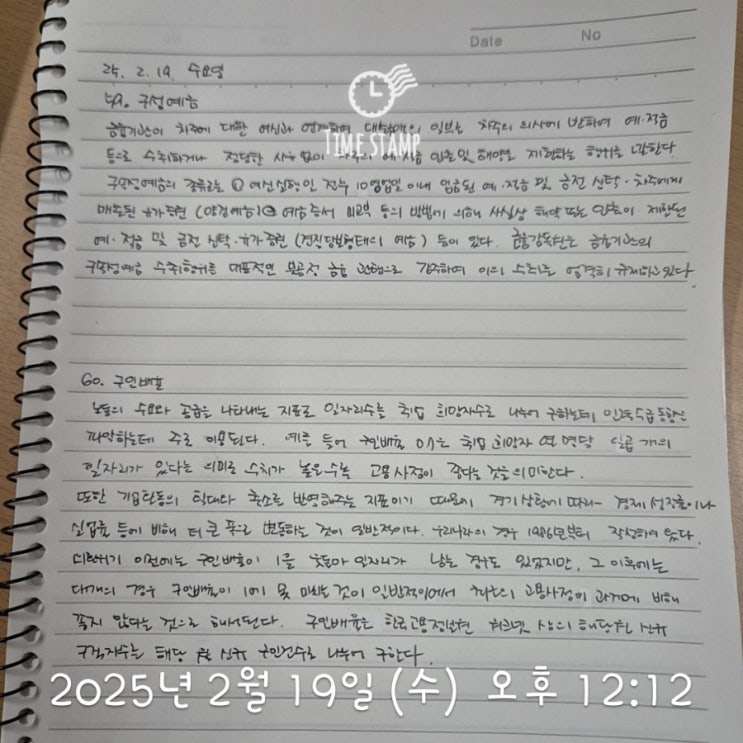 Date No
25. 2. 19. 수요일
59. 구성예금
TIME STAMP
금융기관이 차주에 대한 여신과 연계하여 대출액의 일부는 차주의 의사에 반하여 예·적금
등으로 수취하거나 정당한 사유 없이 차주의 예·적금 인출 및 해약을 제한하는 행위를 말한다.
구속성예금의 종류로는 ① 여신실행일 전후 10영업일 이내 입금된 예·적금 및 금전 신탁·차주에게
매출된 유가증권 (양건예금) ② 예금증서 미교부 등의 방법에 의해 사실상 해약 또는 인출이 제한된
예·적금 및 금전 신탁·유가증권 (견질담보형태의 예금) 등이 있다. 금융감독원은 금융기관의
구속성예금 수취행위를 대표적인 불공정 금융 관행으로 간주하여 이의 수취를 엄격히 규제하고 있다.
60. 구인배율
노동의 수요와 공급을 나타내는 지표로 일자리수를 취업 희망자수로 나누어 구하는데, 인력수급동향을
파악하는데 주로 이용된다. 예를 들어 구인배율 0.7은 취업 희망자 열 명당 일곱 개의
일자리가 있다는 의미로 수치가 높을수록 고용사정이 좋다는 것을 의미한다.
또한 기업활동의 확대나 축소를 반영해주는 지표이기 때문에 경기상황에 따라 경제성장률이나
실업률 등에 비해 더 큰 폭으로 변동하는 것이 일반적이다. 우리나라의 경우 1986년부터 작성하여 왔다.
외환위기 이전에는 구인배율이 1을 웃돌아 일자리가 남는 경우도 있었지만, 그 이후에는
대개의 경우 구인배율이 1에 못 미치는 것이 일반적이어서 최근의 고용사정이 과거에 비해
좋지 않다는 것으로 해석된다. 구인배율은 한국고용정보원 워크넷 상의 해당월 신규
구직자수를 해당 월 신규 구인건수로 나누어 구한다.
2025년 2월 19일 (수) 오후 12:12